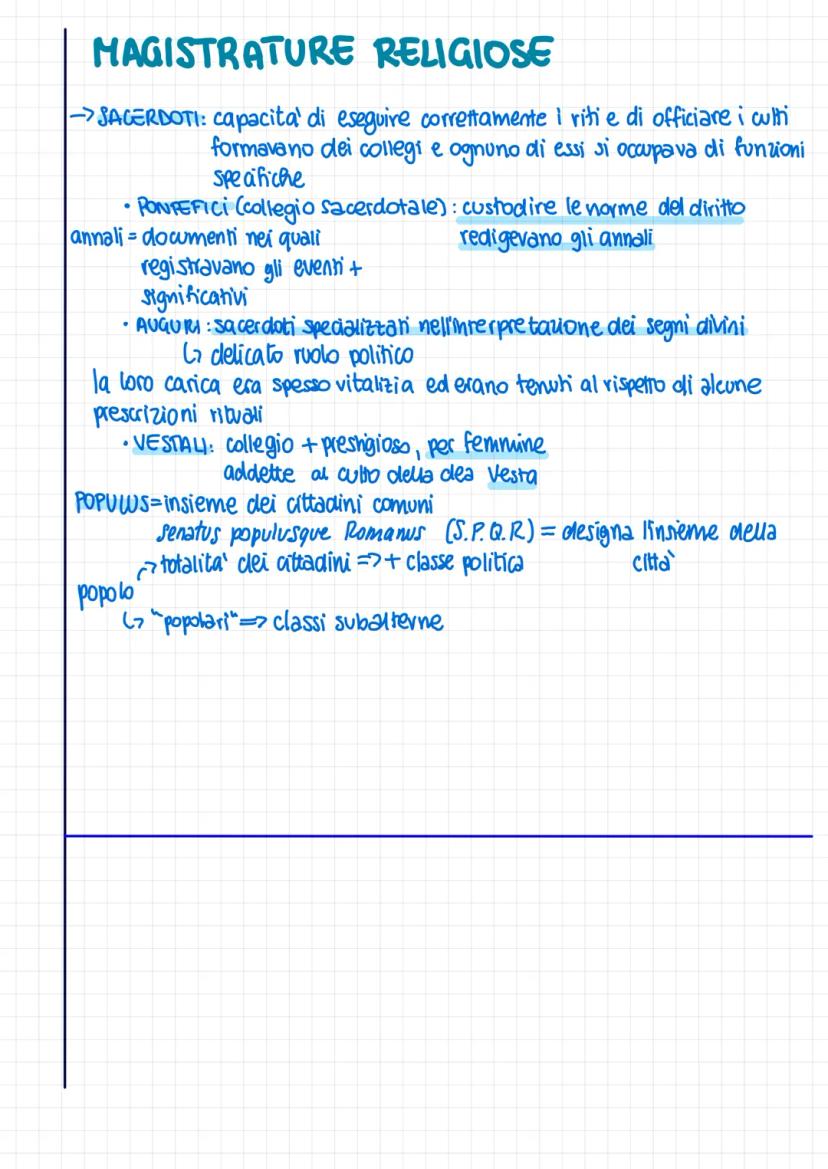 MAGISTRATURE RELIGIOSE
→ SACERDOTI: capacita' di eseguire correttamente i riti e di officiare i culti
formavano dei collegi e ognuno di essi si occupava di funzioni
specifiche
• PONTEFICI (collegio sacerdotale): custodire le norme del diritto
annali = documenti nei quali redigevano gli annali
registravano gli eventi +
significativi
• AUGURI: sacerdoti specializzati nell'interpretazione dei segni divini
↳ delicato ruolo politico
la loro carica era spesso vitalizia ed erano tenuti al rispetto di alcune
prescrizioni rituali
• VESTALI: collegio + prestigioso, per femmine
addette al culto della dea Vesta
POPULUS = insieme dei cittadini comuni
senatus populusque Romanus (S.P.Q.R) = designa l'insieme della
→ totalita' dei cittadini => + classe politica città
popolo
↳ "popolari" => classi subalterne